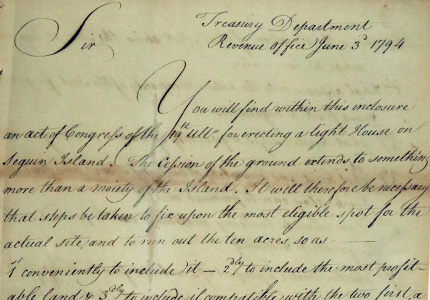 Treasury Department
Revenue Office June 3d 1794
Sir
You will find within this inclosure
an act of Congress of the 19th Ulto for erecting a Light House on
Seguin Island. The Cession of the ground extends to something
more than a moiety of the Island. It will therefore be necessary
that steps be taken to fix upon the most eligible spot for the
actual site, and to run out the ten acres, so as —
1st conveniently to include it — 2dly to include the most profit-
able land & 3dly to include it compatible with the two first, a